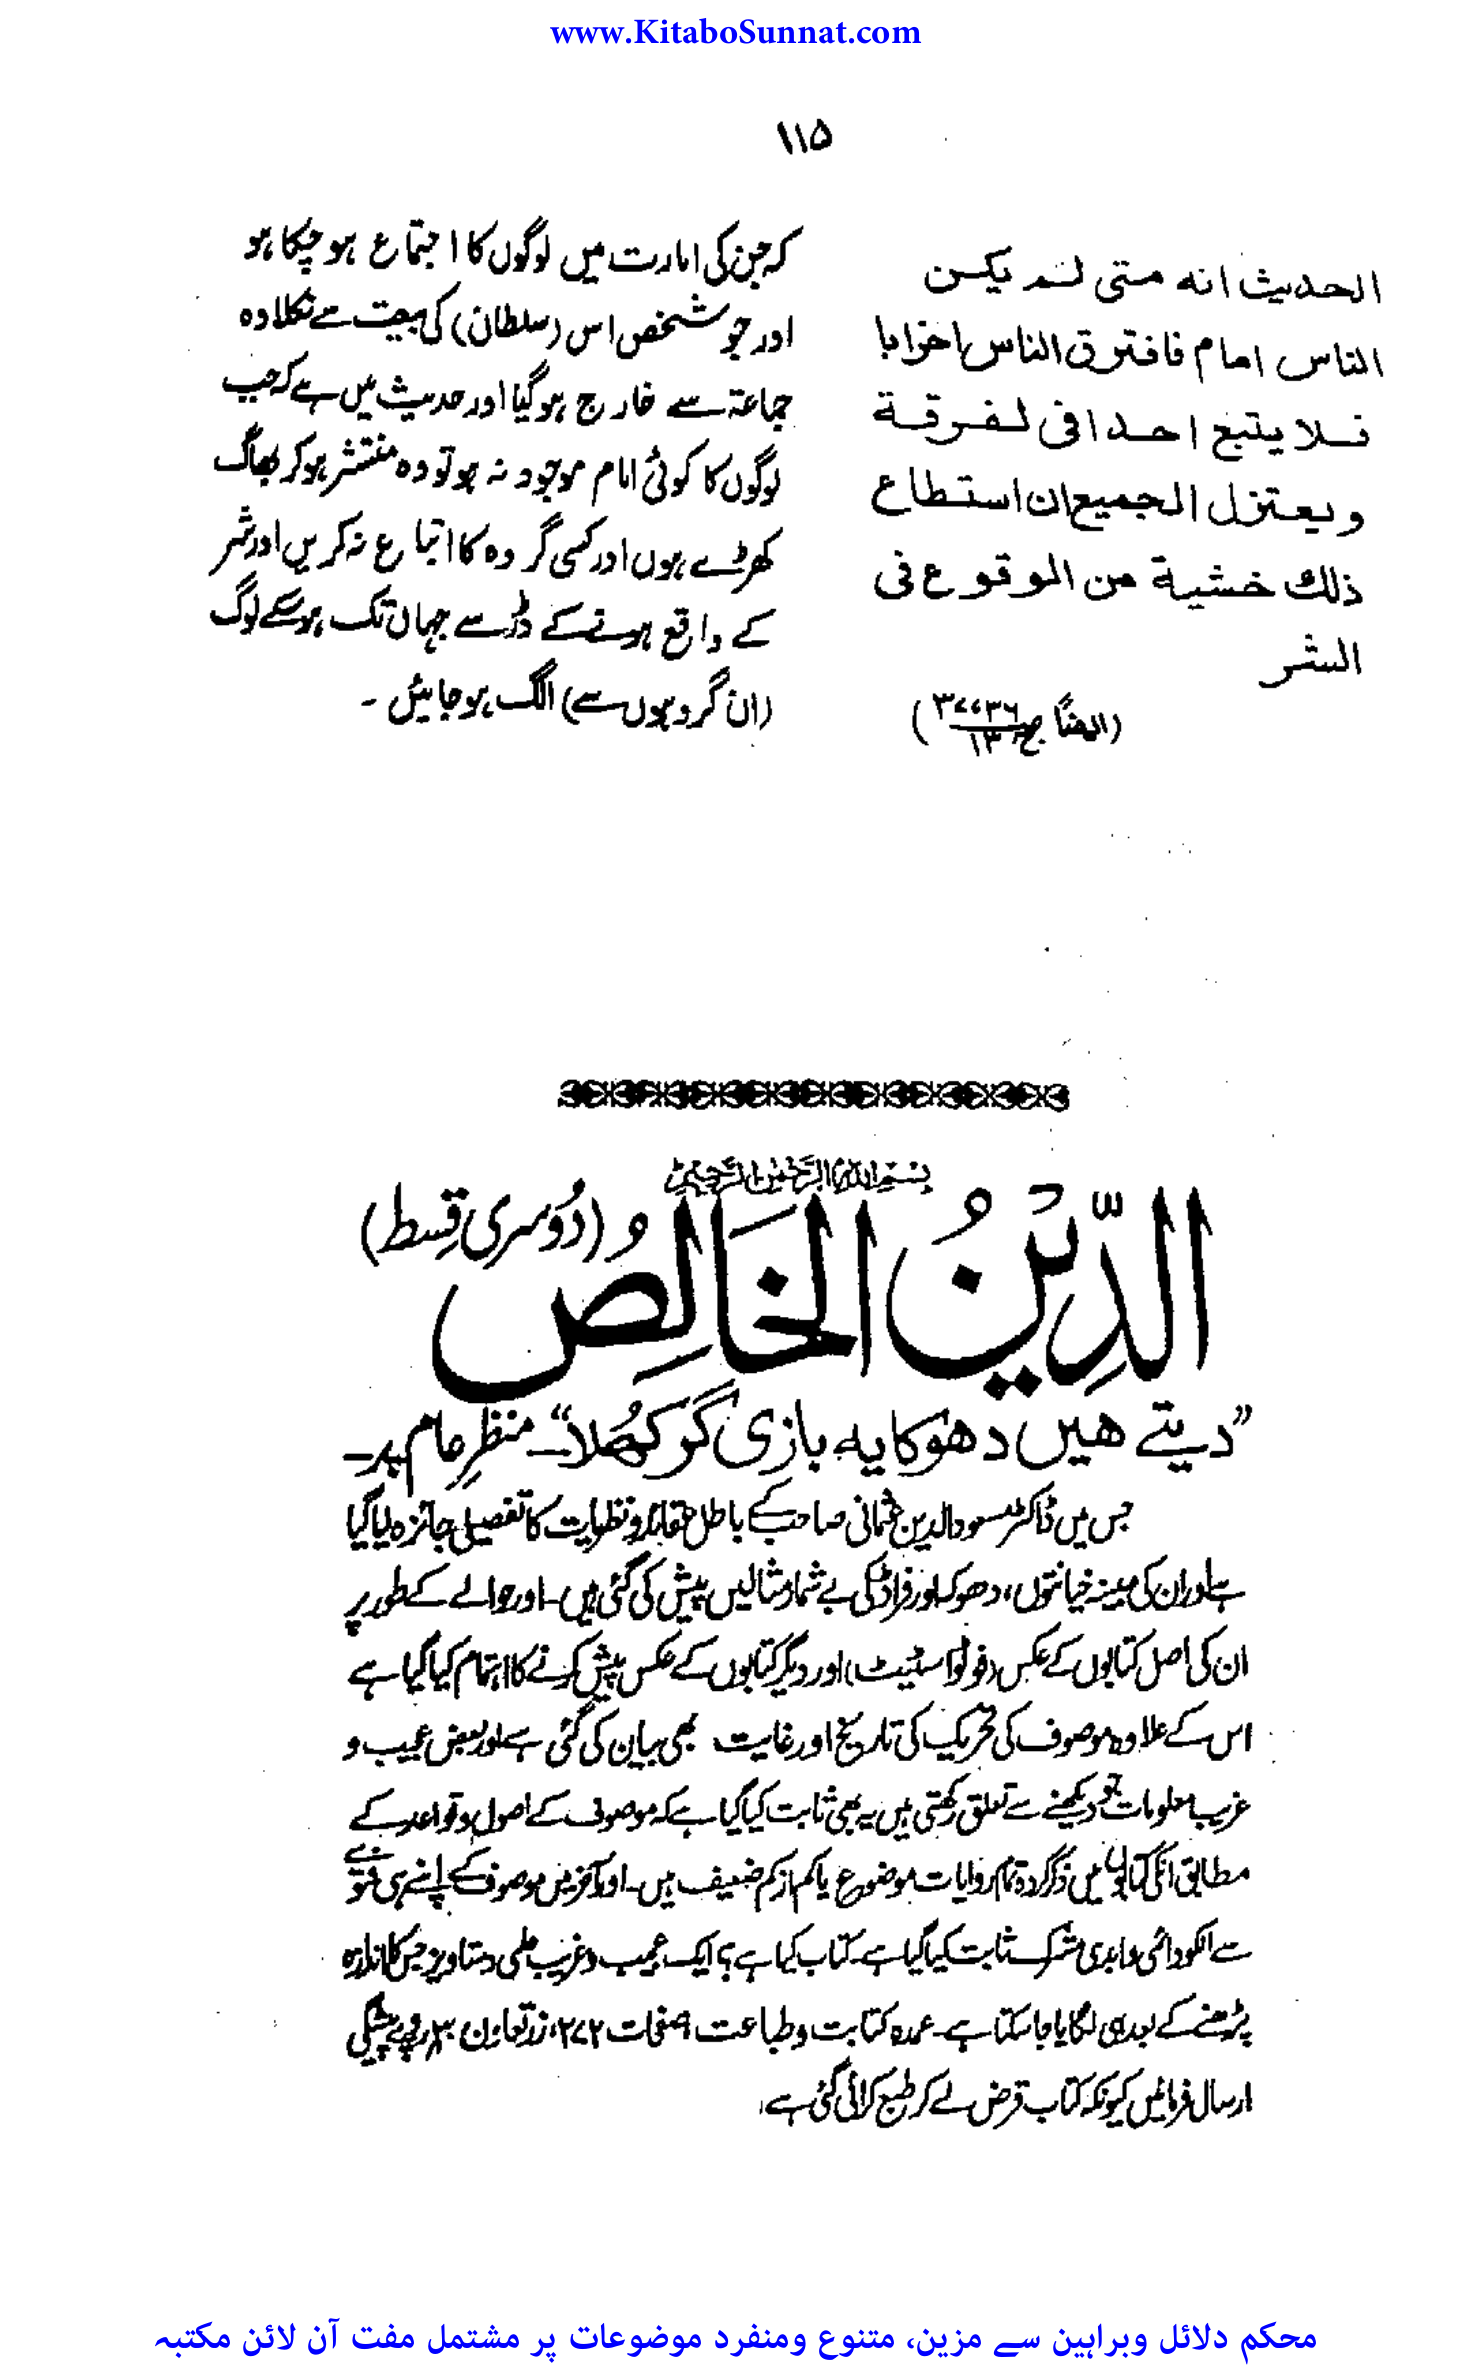 www.KitaboSunnat.com
۱۱۵
الحديث انه متى لم يكن
الناس امام فافترق الناس احزابا
فلا يتبع احدا فى لفرقة
ويعتزل الجميع ان استطاع
ذلك خشية من الوقوع فى
الشر
(ایضًا ج ۳۶،۳۷ / ۱۳)
کہ جن کی امارت میں لوگوں کا اجتماع ہو چکا ہو
اور جو شخص اس (سلطان) کی بیعت سے نکلا وہ
جماعۃ سے خارج ہو گیا اور حدیث میں ہے کہ جب
لوگوں کا کوئی امام موجود نہ ہو تو وہ منتشر ہو کر بھاگ
کھڑے ہوں اور کسی گروہ کا اتباع نہ کریں اور شر
کے واقع ہونے کے ڈر سے جہاں تک ہو سکے لوگ
(ان گروہوں سے) الگ ہو جائیں ۔
بِسْمِ اللّٰهِ الرَّحْمٰنِ الرَّحِيْمِ
الدِّيْنُ الخَالِصُ (دُوسری قِسط)
”دیتے ھیں دھوکا یہ بازی گر کھُلا“ ۔ منظرِ عام پر ۔
جس میں ڈاکٹر مسعود الدین عثمانی صاحب کے باطل عقائد و نظریات کا تفصیلی جائزہ لیا گیا
ہے اور ان کی مبینہ خیانتوں، دھوکہ اور فراڈ کی بے شمار مثالیں پیش کی گئی ہیں۔ اور حوالے کے طور پر
ان کی اصل کتابوں کے عکس (فوٹو اسٹیٹ) اور دیگر کتابوں کے عکس پیش کرنے کا اہتمام کیا گیا ہے
اس کے علاوہ موصوف کی تحریک کی تاریخ اور غایت بھی بیان کی گئی ہے اور بعض عجیب و
غریب معلومات جو دیکھنے سے تعلق رکھتی ہیں یہ بھی ثابت کیا گیا ہے کہ موصوف کے اصول و قواعد کے
مطابق انکی کتابوں میں ذکر کردہ تمام روایات موضوع یا کم از کم ضعیف ہیں۔ اور آخر میں موصوف کے اپنے ہی فتوے
سے انکو دائمی و ابدی مشرک ثابت کیا گیا ہے۔ کتاب کیا ہے؟ ایک عجیب و غریب علمی دستاویز جس کا اندازہ
پڑھنے کے بعد ہی لگایا جا سکتا ہے۔ عمدہ کتابت و طباعت صفحات ۲۷۲، زر تعاون ۳۰ روپے پیشگی
ارسال فرمائیں کیونکہ کتاب قرض لے کر طبع کرائی گئی ہے۔
محکم دلائل وبراہین سے مزین، متنوع ومنفرد موضوعات پر مشتمل مفت آن لائن مکتبہ